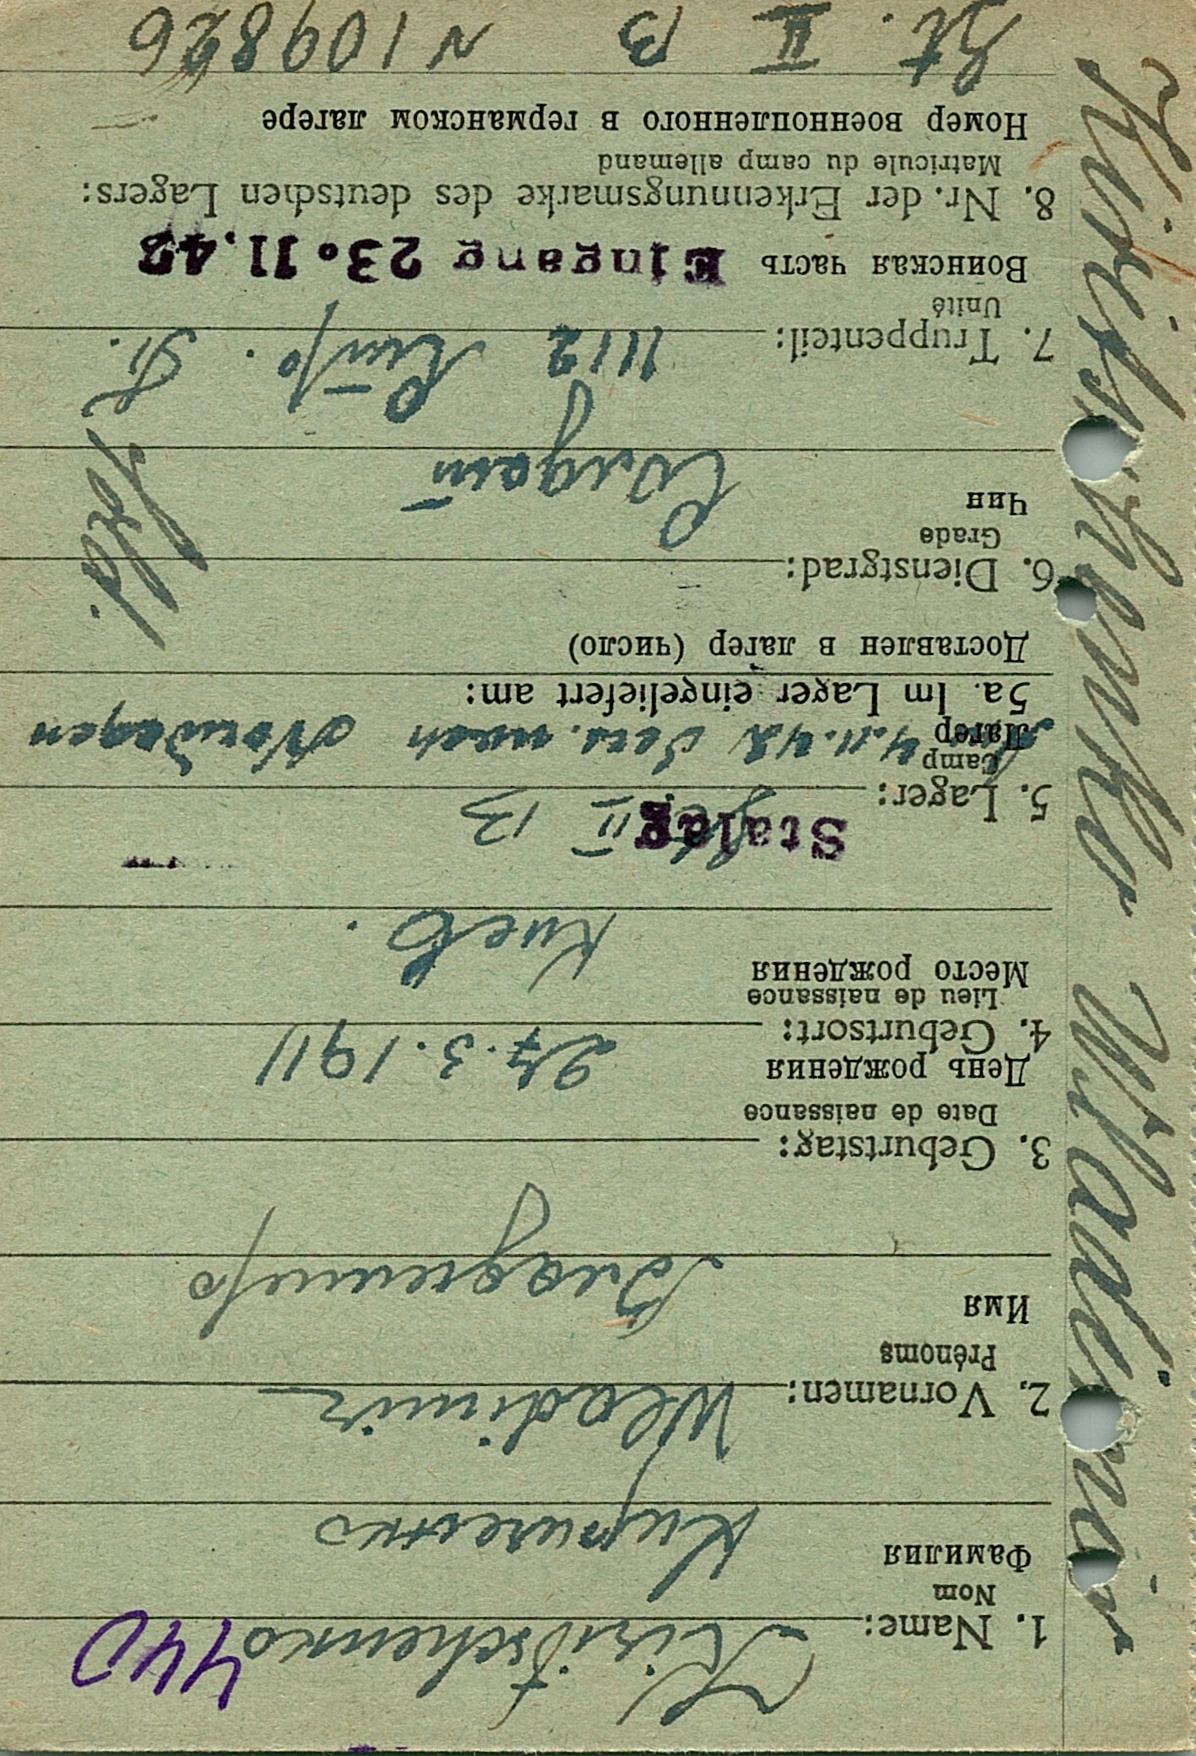 Kiritschenko Wladimir
440
1. Name: Kiritschenko
Nom
Фамилия
Кириченко
2. Vornamen: Wladimir
Prénoms
Имя
Владимир
3. Geburtstag:
Date de naissance
День рождения 27.3.1911
4. Geburtsort:
Lieu de naissance
Место рождения
Киев.
Stalag II B
5. Lager:
Camp
Лагер 4.11.42 vers. nach Norwegen
5a. Im Lager eingeliefert am:
Доставлен в лагер (число)
6. Dienstgrad:
Grade
Чин
Sold.
7. Truppenteil: 1112
Unité
Воинская часть Eingang 23.11.42
8. Nr. der Erkennungsmarke des deutschen Lagers:
Matricule du camp allemand
Номер военнопленного в германском лагере
St. II B N 109826